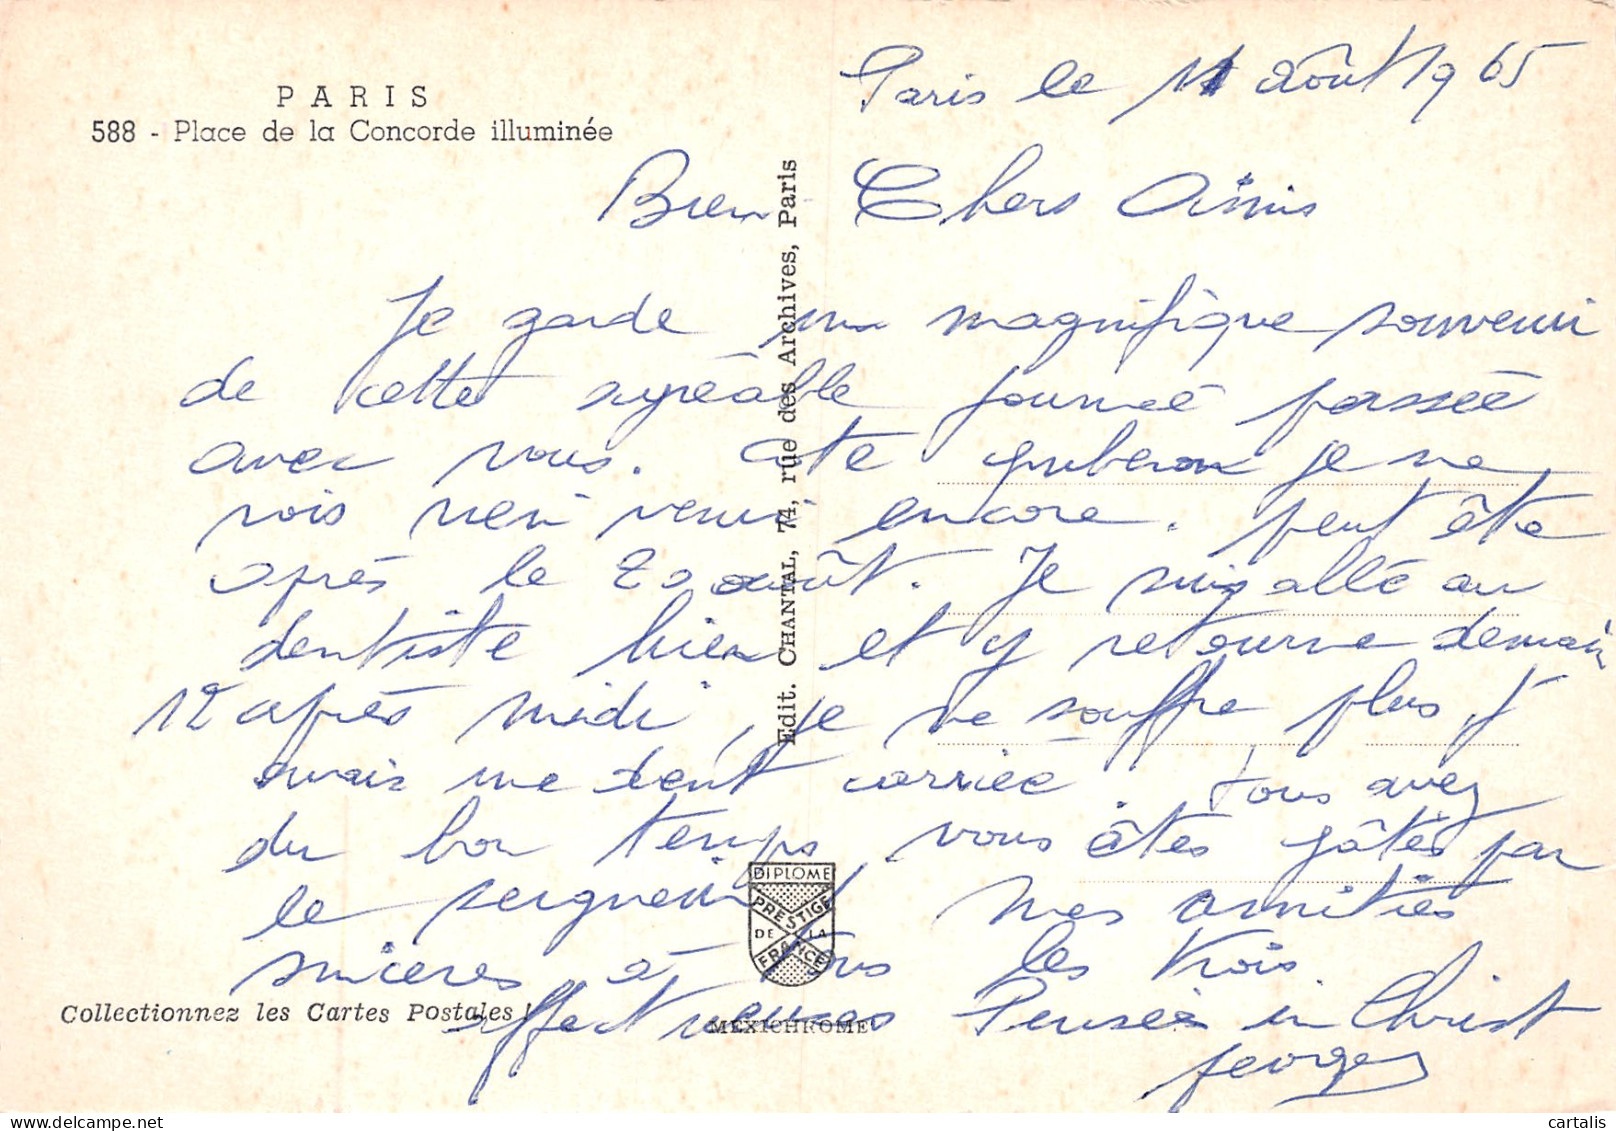 PARIS
588 - Place de la Concorde illuminée
Paris le 11 août 1965
Bien Chers Amis
Je garde un magnifique souvenir
de cette agréable journée passée
avec vous. côté quiberon je ne
vois rien venir encore. peut être
après le 20 août. Je suis allé au
dentiste hier et y retourne demain
12 après midi, je ne souffre plus, j'
avais une dent carriée. vous avez
du bon temps, vous êtes gâtés par
le seigneur. mes amitiés
sincères à tous les trois.
affectueuses Pensées in Christ
georges
Edit. CHANTAL, 74, rue des Archives, Paris
DIPLOME
PRESTIGE
DE LA
FRANCE
Collectionnez les Cartes Postales !
MEXICHROME
cartalis